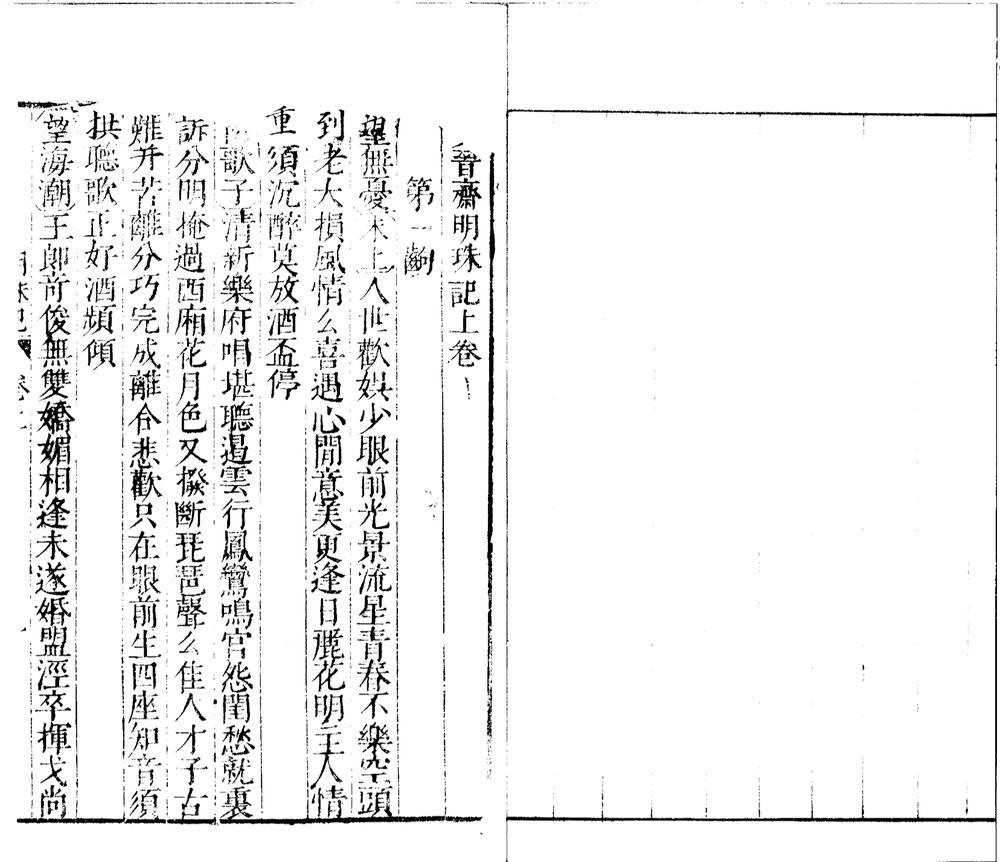 音齋明珠記上卷
第一齣
望無憂末上人世歡娛少眼前光景流星青春不樂空頭
到老大損風情么喜遇心閒意美更逢日麗花明主人情
重須沉醉莫放酒盃停
歌子清新樂府唱堪聽遏雲行鳳鸞鳴宮怨閨愁就裏
訴分明掩過西廂花月色又撥斷琵琶聲么佳人才子古
難并苦離分巧完成離合悲歡只在眼前生四座知音須
拱聽歌正好酒頻傾
望海潮王郎竒俊無雙嬌媚相逢未遂婚盟涇卒揮戈尚
明珠記 卷上